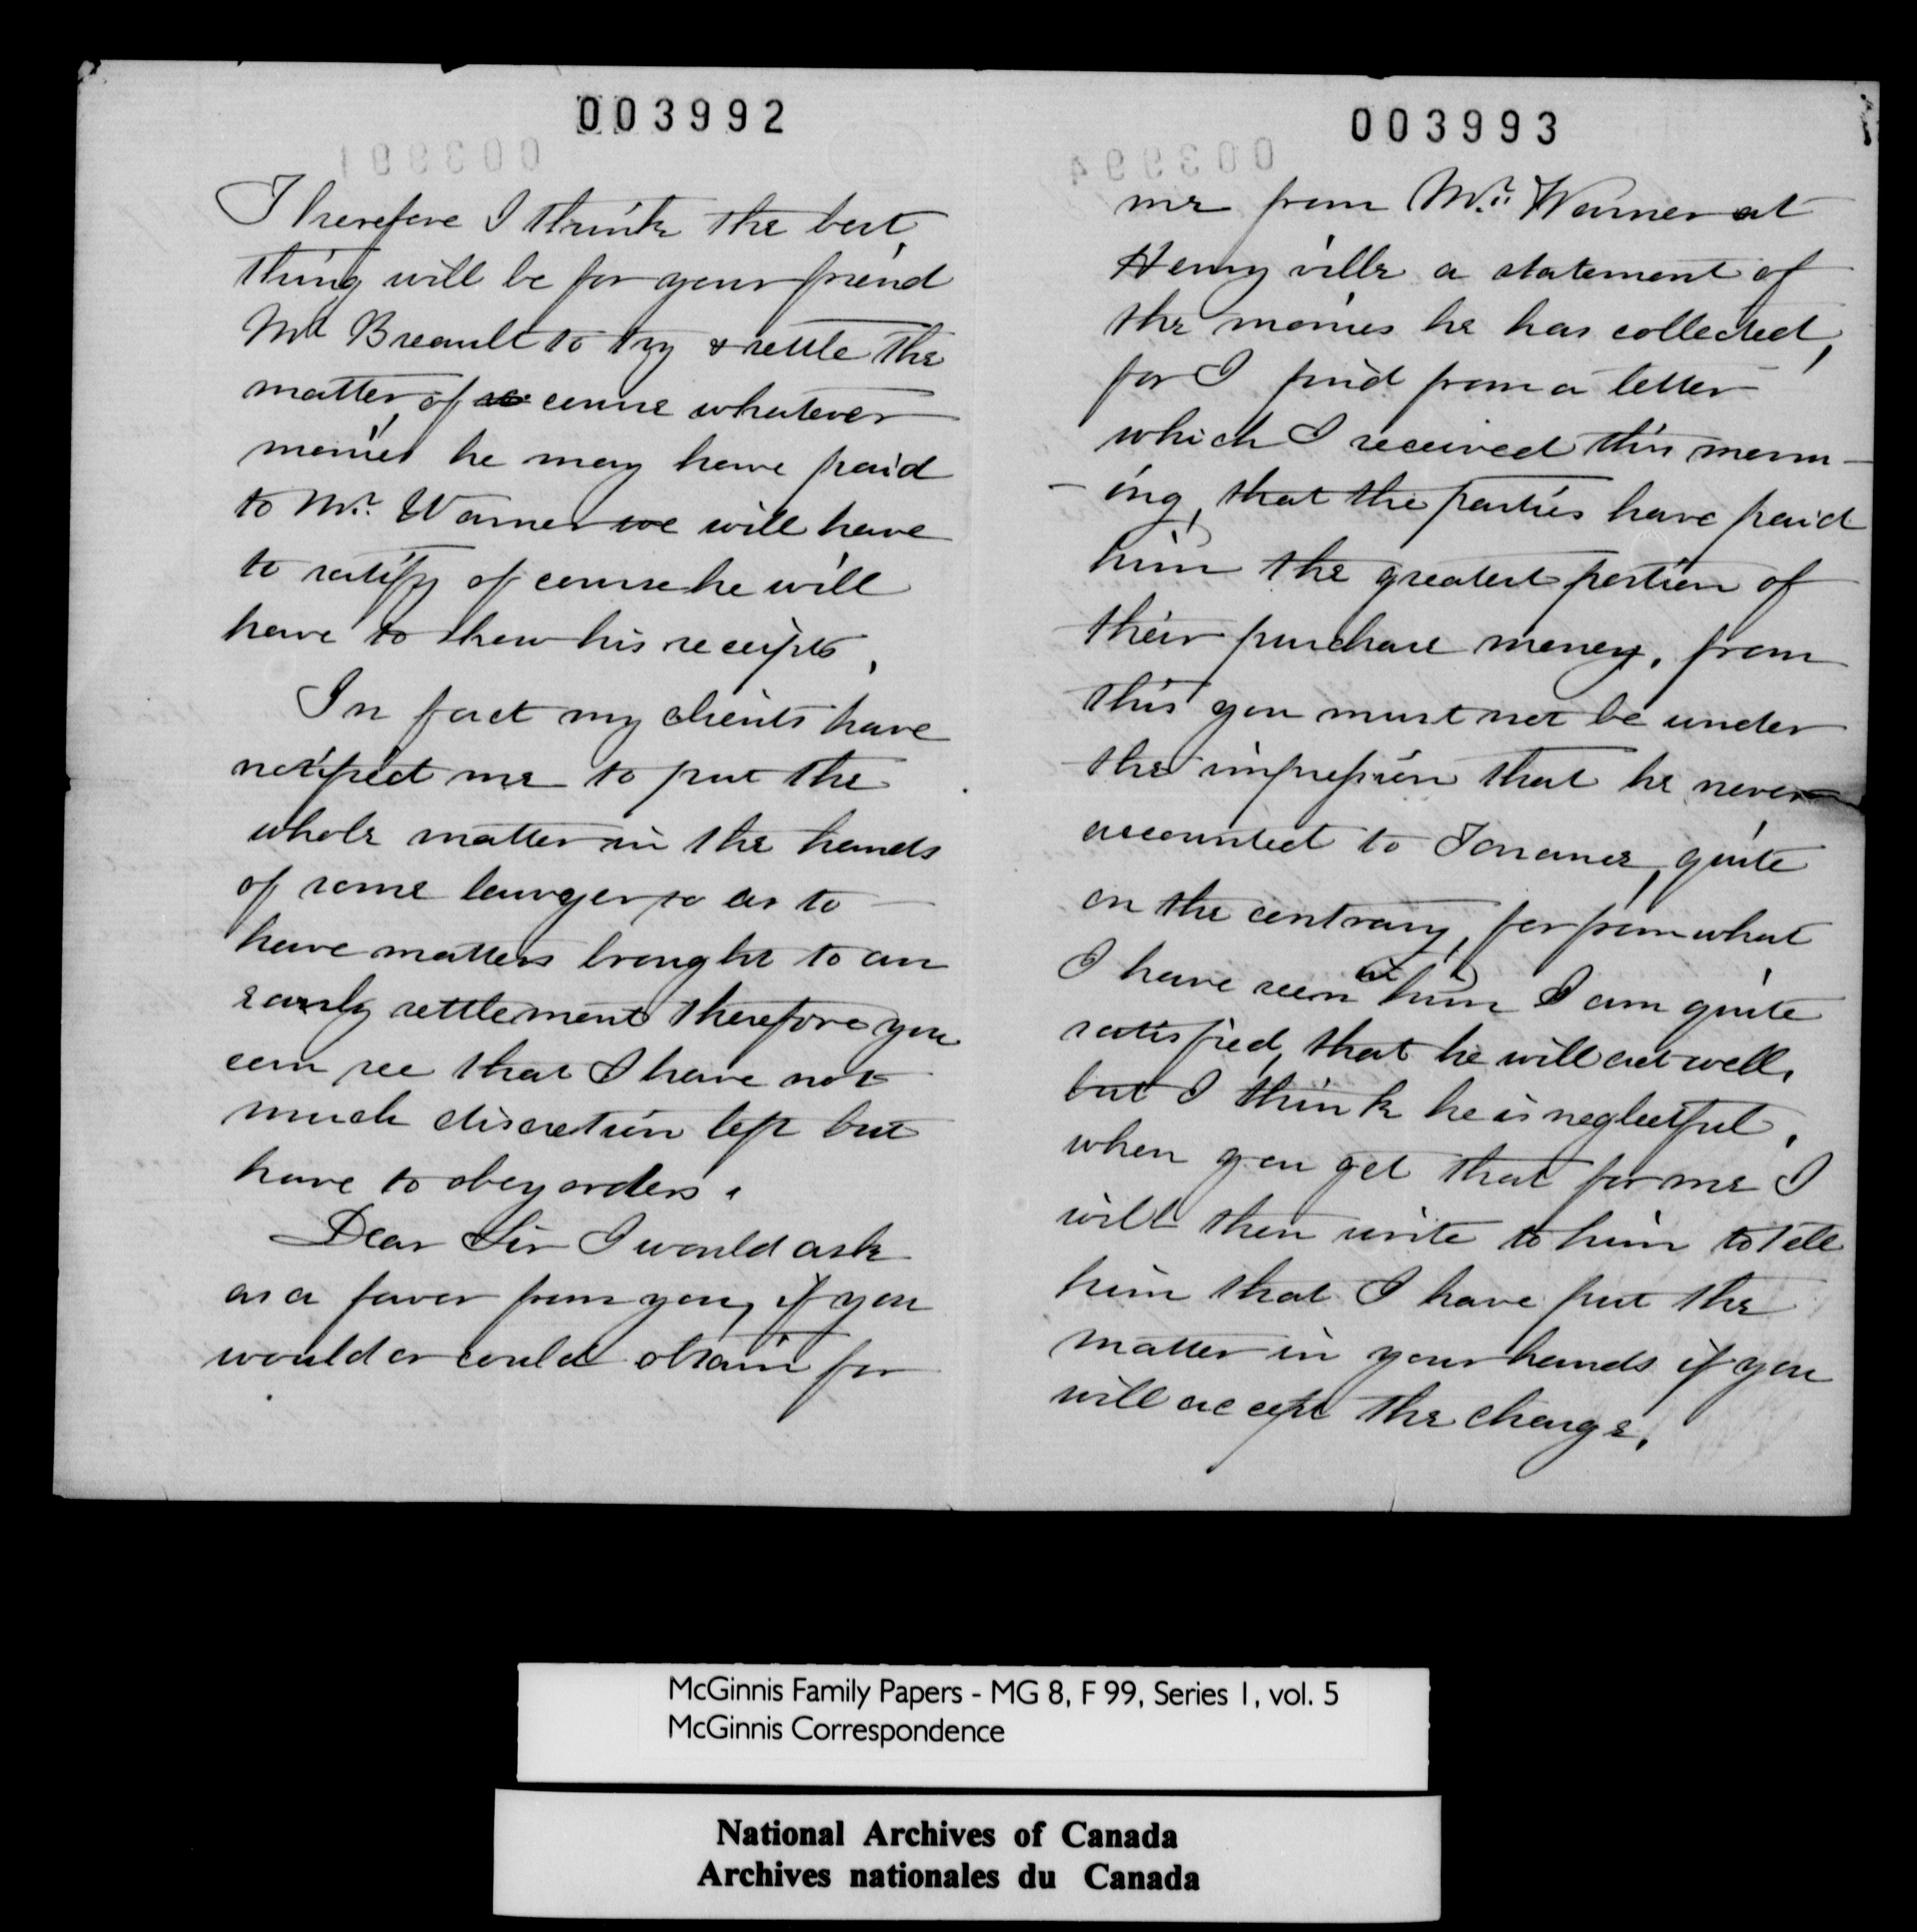 003992
Therefore I think the best
thing will be for your friend
Mr Breault to try & settle the
matter, of course whatever
monies he may have paid
to Mr. Warner we will have
to ratify of course he will
have to shew his receipts,
In fact my clients have
notified me to put the
whole matter in the hands
of some lawyer so as to
have matters brought to an
early settlement therefore you
can see that I have not
much discretion left but
have to obey orders.
Dear Sir I would ask
as a favor from you, if you
would or could obtain for
003993
me from Mr. Warner at
Henryville a statement of
the monies he has collected,
for I find from a letter
which I received this morn-
-ing, that the parties have paid
him the greatest portion of
their purchase money, from
this you must not be under
the impression that he never
accounted to quite
on the contrary, for from what
I have seen of him I am quite
satisfied, that he will act well,
but I think he is neglectful,
when you get that for me I
will then write to him to tell
him that I have put the
matter in your hands if you
will accept the charge,
McGinnis Family Papers - MG 8, F 99, Series 1, vol. 5
McGinnis Correspondence
National Archives of Canada
Archives nationales du Canada